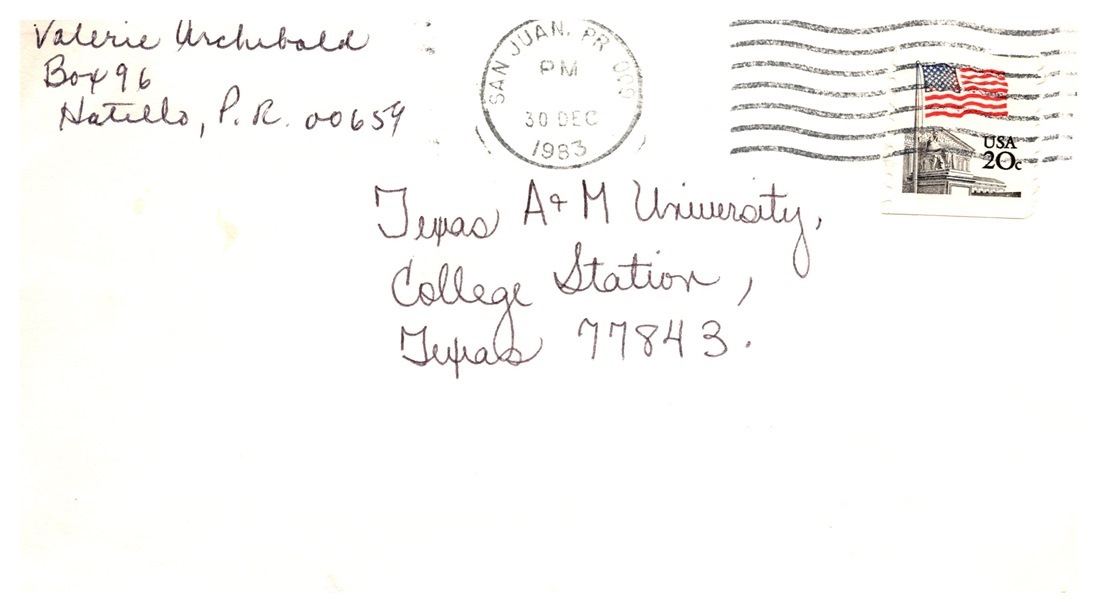 Valerie Archibald
Box 96
Hatillo, P.R. 00659
SAN JUAN, PR 009
PM
30 DEC
1983
USA
20c
Texas A+M University,
College Station,
Texas 77843.